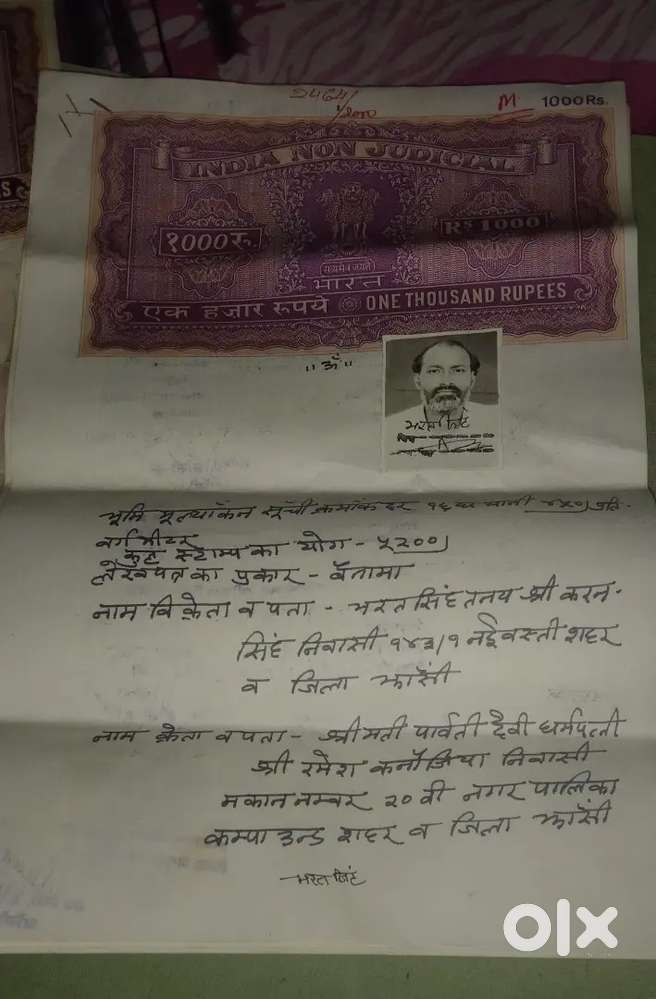 2464/
1/2000
M
1000 Rs.
INDIA NON JUDICIAL
१000 रु.
Rs 1000
सत्यमेव जयते
भारत
एक हज़ार रुपये ONE THOUSAND RUPEES
"ॐ"
भरत सिंह
भूमि मूल्यॉकन सूची क्रमॉक दर १६ पर यानी ४५०) प्रति.
वर्ग मीटर
कुल स्टाम्प का योग - ५२००)
लेखपत्र का प्रकार - बैनामा
नाम विक्रेता व पता - भरत सिंह तनय श्री करन.
सिंह निवासी १४३/१ नईवस्ती शहर
व जिला झाँसी
नाम क्रेता व पता - श्रीमती पार्वती देवी धर्मपत्नी
श्री रमेश कनौजिया निवासी
मकान नम्बर २० वी नगर पालिका
कम्पाउन्ड शहर व जिला झाँसी
भरत सिंह
olx